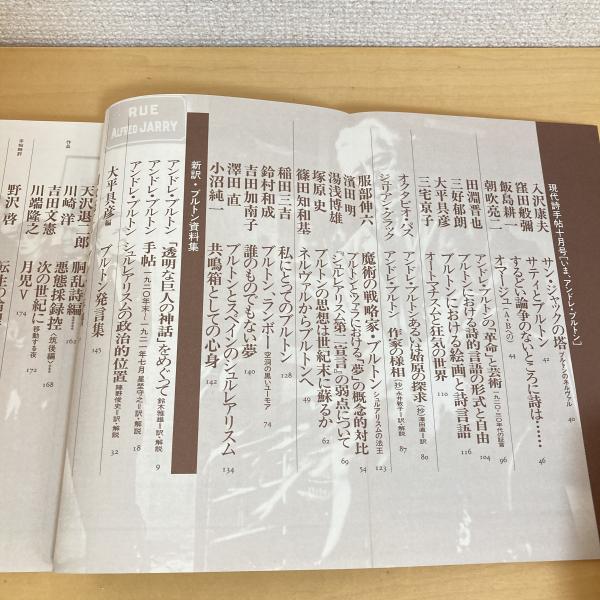 現代詩手帖十月号〈いま、アンドレ・ブルトン〉
入沢康夫 サン・ジャックの塔 ブルトンのネルヴァル 40
窪田般彌 サティとブルトン 42
飯島耕一 するどい論争のないところに詩は…… 46
朝吹亮二 オマージュ〈A・Bへの〉 44
田淵晋也 アンドレ・ブルトンの「革命」と芸術 一九二〇・三〇年代の証言 96
三好郁朗 ブルトンにおける詩的言語の形式と自由 104
大平具彦 ブルトンにおける絵画と詩言語 116
三宅京子 オートマチスムと狂気の世界 110
オクタビオ・パス アンドレ・ブルトンあるいは始原の探求 〈抄〉澤田直=訳 80
ジュリアン・グラック アンドレ・ブルトン 作家の様相 〈抄〉永井敦子=訳・解説 87
服部伸六 魔術の戦略家・ブルトン シュルレアリスムの法王 123
濱田明 ブルトンとツァラにおける「夢」の概念的対比 54
湯浅博雄 「シュルレアリスム第二宣言」の弱点について 69
塚原史 ブルトンの思想は世紀末に蘇るか 62
篠田知和基 ネルヴァルからブルトンへ 49
稲田三吉 私にとってのブルトン 128
鈴村和成 ブルトン、ランボー 空洞の黒いユーモア 74
吉田加南子 誰のものでもない夢 140
澤田直 ブルトンとスペインのシュルレアリスム 134
小沼純一 共鳴箱としての心身 142
新訳・ブルトン資料集
アンドレ・ブルトン 「透明な巨人の神話」をめぐって 鈴木雅雄=訳・解説 9
アンドレ・ブルトン 手帖 一九二〇年末・一九二一年七月 星埜守之=訳・解説 18
アンドレ・ブルトン シュルレアリスムの政治的位置 陣野俊史=訳・解説 32
大平具彦編 ブルトン発言集 145
RUE
ALFRED JARRY
作品
天沢退二郎 胴乱詩編…… 162
川崎洋 悪態採録控〈筑後編〉…… 168
吉田文憲 次の世紀に 移動する夜 172
川端隆之 月児V 174
野沢啓